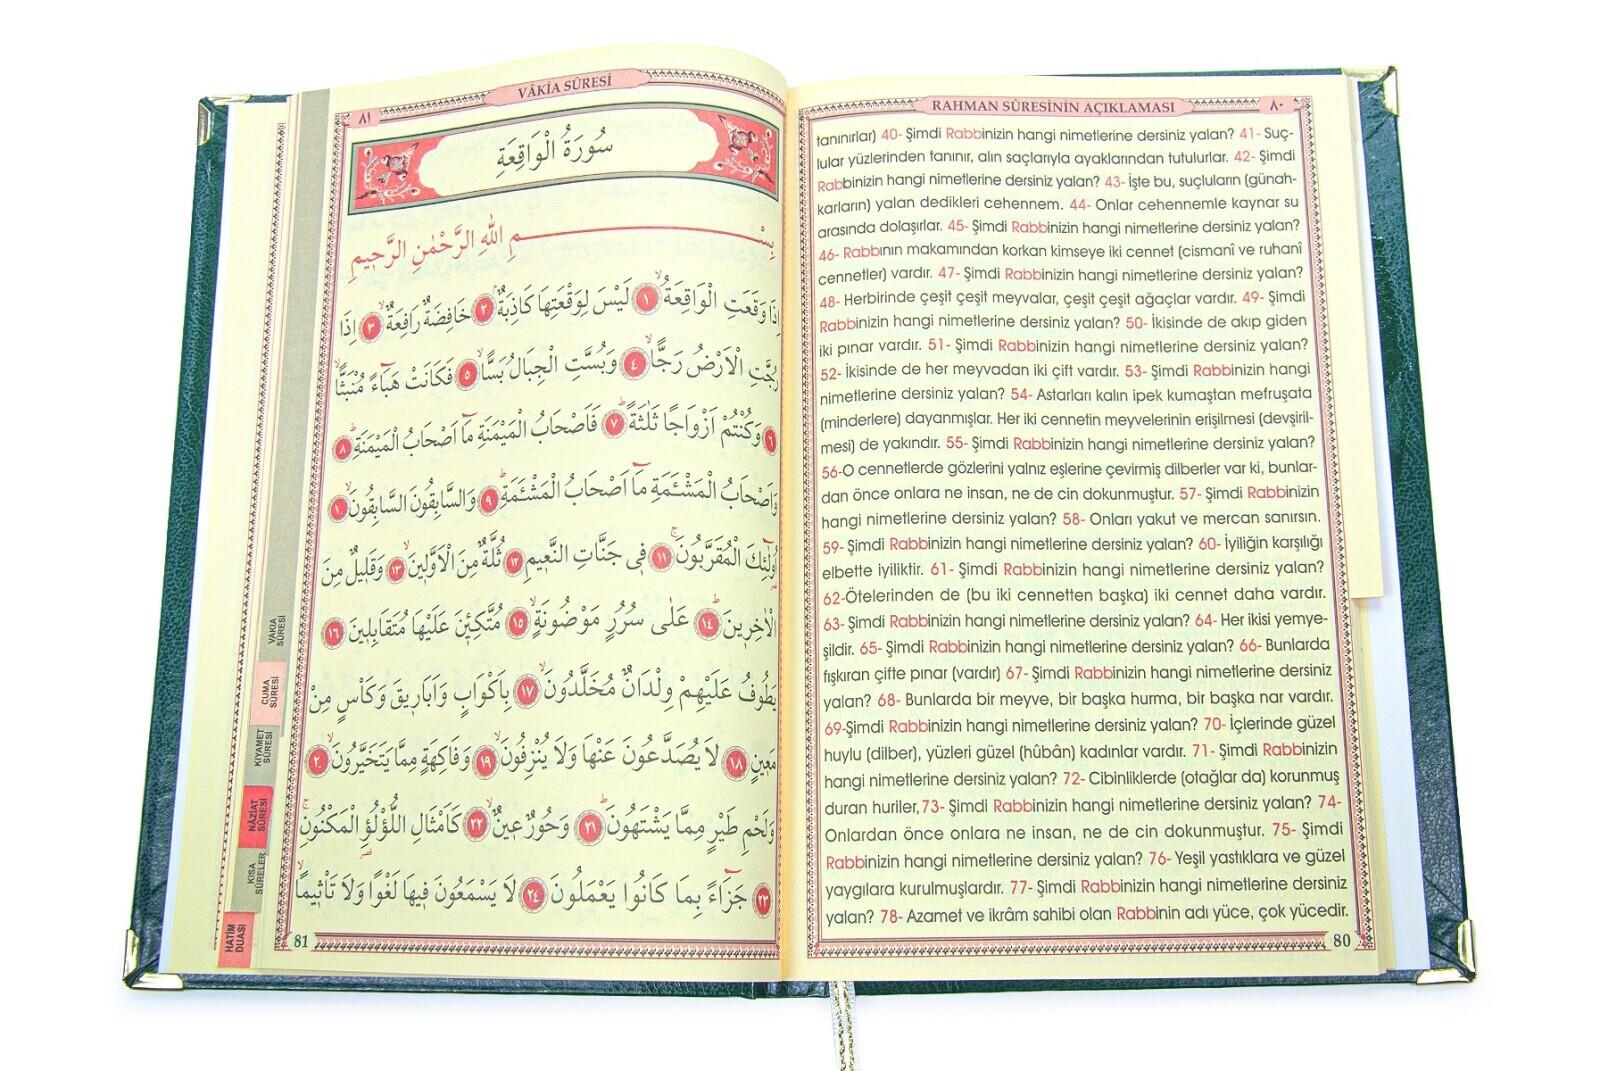 RAHMAN SÛRESİNİN AÇIKLAMASI
٨٠
tanınırlar) 40- Şimdi Rabbinizin hangi nimetlerine dersiniz yalan? 41- Suç-
lular yüzlerinden tanınır, alın saçlarıyla ayaklarından tutulurlar. 42- Şimdi
Rabbinizin hangi nimetlerine dersiniz yalan? 43- İşte bu, suçluların (günah-
karların) yalan dedikleri cehennem. 44- Onlar cehennemle kaynar su
arasında dolaşırlar. 45- Şimdi Rabbinizin hangi nimetlerine dersiniz yalan?
46- Rabbının makamından korkan kimseye iki cennet (cismanî ve ruhanî
cennetler) vardır. 47- Şimdi Rabbinizin hangi nimetlerine dersiniz yalan?
48- Herbirinde çeşit çeşit meyvalar, çeşit çeşit ağaçlar vardır. 49- Şimdi
Rabbinizin hangi nimetlerine dersiniz yalan? 50- İkisinde de akıp giden
iki pınar vardır. 51- Şimdi Rabbinizin hangi nimetlerine dersiniz yalan?
52- İkisinde de her meyvadan iki çift vardır. 53- Şimdi Rabbinizin hangi
nimetlerine dersiniz yalan? 54- Astarları kalın ipek kumaştan mefruşata
(minderlere) dayanmışlar. Her iki cennetin meyvelerinin erişilmesi (devşiril-
mesi) de yakındır. 55- Şimdi Rabbinizin hangi nimetlerine dersiniz yalan?
56-O cennetlerde gözlerini yalnız eşlerine çevirmiş dilberler var ki, bunlar-
dan önce onlara ne insan, ne de cin dokunmuştur. 57- Şimdi Rabbinizin
hangi nimetlerine dersiniz yalan? 58- Onları yakut ve mercan sanırsın.
59- Şimdi Rabbinizin hangi nimetlerine dersiniz yalan? 60- İyiliğin karşılığı
elbette iyiliktir. 61- Şimdi Rabbinizin hangi nimetlerine dersiniz yalan?
62-Ötelerinden de (bu iki cennetten başka) iki cennet daha vardır.
63- Şimdi Rabbinizin hangi nimetlerine dersiniz yalan? 64- Her ikisi yemye-
şildir. 65- Şimdi Rabbinizin hangi nimetlerine dersiniz yalan? 66- Bunlarda
fışkıran çifte pınar (vardır) 67- Şimdi Rabbinizin hangi nimetlerine dersiniz
yalan? 68- Bunlarda bir meyve, bir başka hurma, bir başka nar vardır.
69-Şimdi Rabbinizin hangi nimetlerine dersiniz yalan? 70- İçlerinde güzel
huylu (dilber), yüzleri güzel (hûbân) kadınlar vardır. 71- Şimdi Rabbinizin
hangi nimetlerine dersiniz yalan? 72- Cibinliklerde (otağlar da) korunmuş
duran huriler,73- Şimdi Rabbinizin hangi nimetlerine dersiniz yalan? 74-
Onlardan önce onlara ne insan, ne de cin dokunmuştur. 75- Şimdi
Rabbinizin hangi nimetlerine dersiniz yalan? 76- Yeşil yastıklara ve güzel
yaygılara kurulmuşlardır. 77- Şimdi Rabbinizin hangi nimetlerine dersiniz
yalan? 78- Azamet ve ikrâm sahibi olan Rabbinin adı yüce, çok yücedir.
80
VÂKİA SÛRESİ
٨١
سُورَةُ الْوَاقِعَةِ
بِسْمِ اللهِ الرَّحْمٰنِ الرَّحٖيمِ
اِذَا وَقَعَتِ الْوَاقِعَةُۙ ١ لَيْسَ لِوَقْعَتِهَا كَاذِبَةٌۘ ٢ خَافِضَةٌ رَافِعَةٌۙ ٣ اِذَا
رُجَّتِ الْاَرْضُ رَجًّاۙ ٤ وَبُسَّتِ الْجِبَالُ بَسًّاۙ ٥ فَكَانَتْ هَبَٓاءً مُنْبَثًّاۙ
٦ وَكُنْتُمْ اَزْوَاجًا ثَلٰثَةًۜ ٧ فَاَصْحَابُ الْمَيْمَنَةِ مَٓا اَصْحَابُ الْمَيْمَنَةِۜ ٨
وَاَصْحَابُ الْمَشْـَٔمَةِ مَٓا اَصْحَابُ الْمَشْـَٔمَةِۜ ٩ وَالسَّابِقُونَ السَّابِقُونَۙ ١٠
اُولٰٓئِكَ الْمُقَرَّبُونَۚ ١١ فٖي جَنَّاتِ النَّعٖيمِ ١٢ ثُلَّةٌ مِنَ الْاَوَّلٖينَۙ ١٣ وَقَلٖيلٌ مِنَ
الْاٰخِرٖينَۜ ١٤ عَلٰى سُرُرٍ مَوْضُونَةٍۙ ١٥ مُتَّكِـٖٔينَ عَلَيْهَا مُتَقَابِلٖينَ ١٦
يَطُوفُ عَلَيْهِمْ وِلْدَانٌ مُخَلَّدُونَۙ ١٧ بِاَكْوَابٍ وَاَبَارٖيقَ وَكَأْسٍ مِنْ
مَعٖينٍۙ ١٨ لَا يُصَدَّعُونَ عَنْهَا وَلَا يُنْزِفُونَۙ ١٩ وَفَاكِهَةٍ مِمَّا يَتَخَيَّرُونَۙ ٢٠
وَلَحْمِ طَيْرٍ مِمَّا يَشْتَهُونَۜ ٢١ وَحُورٌ عٖينٌۙ ٢٢ كَاَمْثَالِ اللُّؤْلُؤِ الْمَكْنُونِۚ
٢٣ جَزَٓاءً بِمَا كَانُوا يَعْمَلُونَ ٢٤ لَا يَسْمَعُونَ فٖيهَا لَغْوًا وَلَا تَأْثٖيمًاۙ
81
VAKIA
SÛRESİ
CUMA
SÛRESİ
KIYAMET
SÛRESİ
NÂZİAT
SÛRESİ
KISA
SÛRELER
HATİM
DUASI